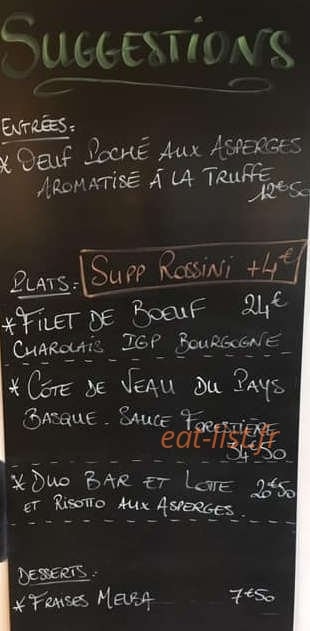 SUGGESTIONS
ENTRÉES:
* OEUF POCHÉ AUX ASPERGES
AROMATISÉ À LA TRUFFE
12€50
PLATS: SUPP ROSSINI +4€
* FILET DE BOEUF 24€
CHAROLAIS IGP BOURGOGNE
* CÔTE DE VEAU DU PAYS
BASQUE - SAUCE FORESTIÈRE
eat-list.fr
34€50
* DUO BAR ET LOTTE 26€50
ET RISOTTO AUX ASPERGES
DESSERTS:
* FRAISES MELBA 7€50